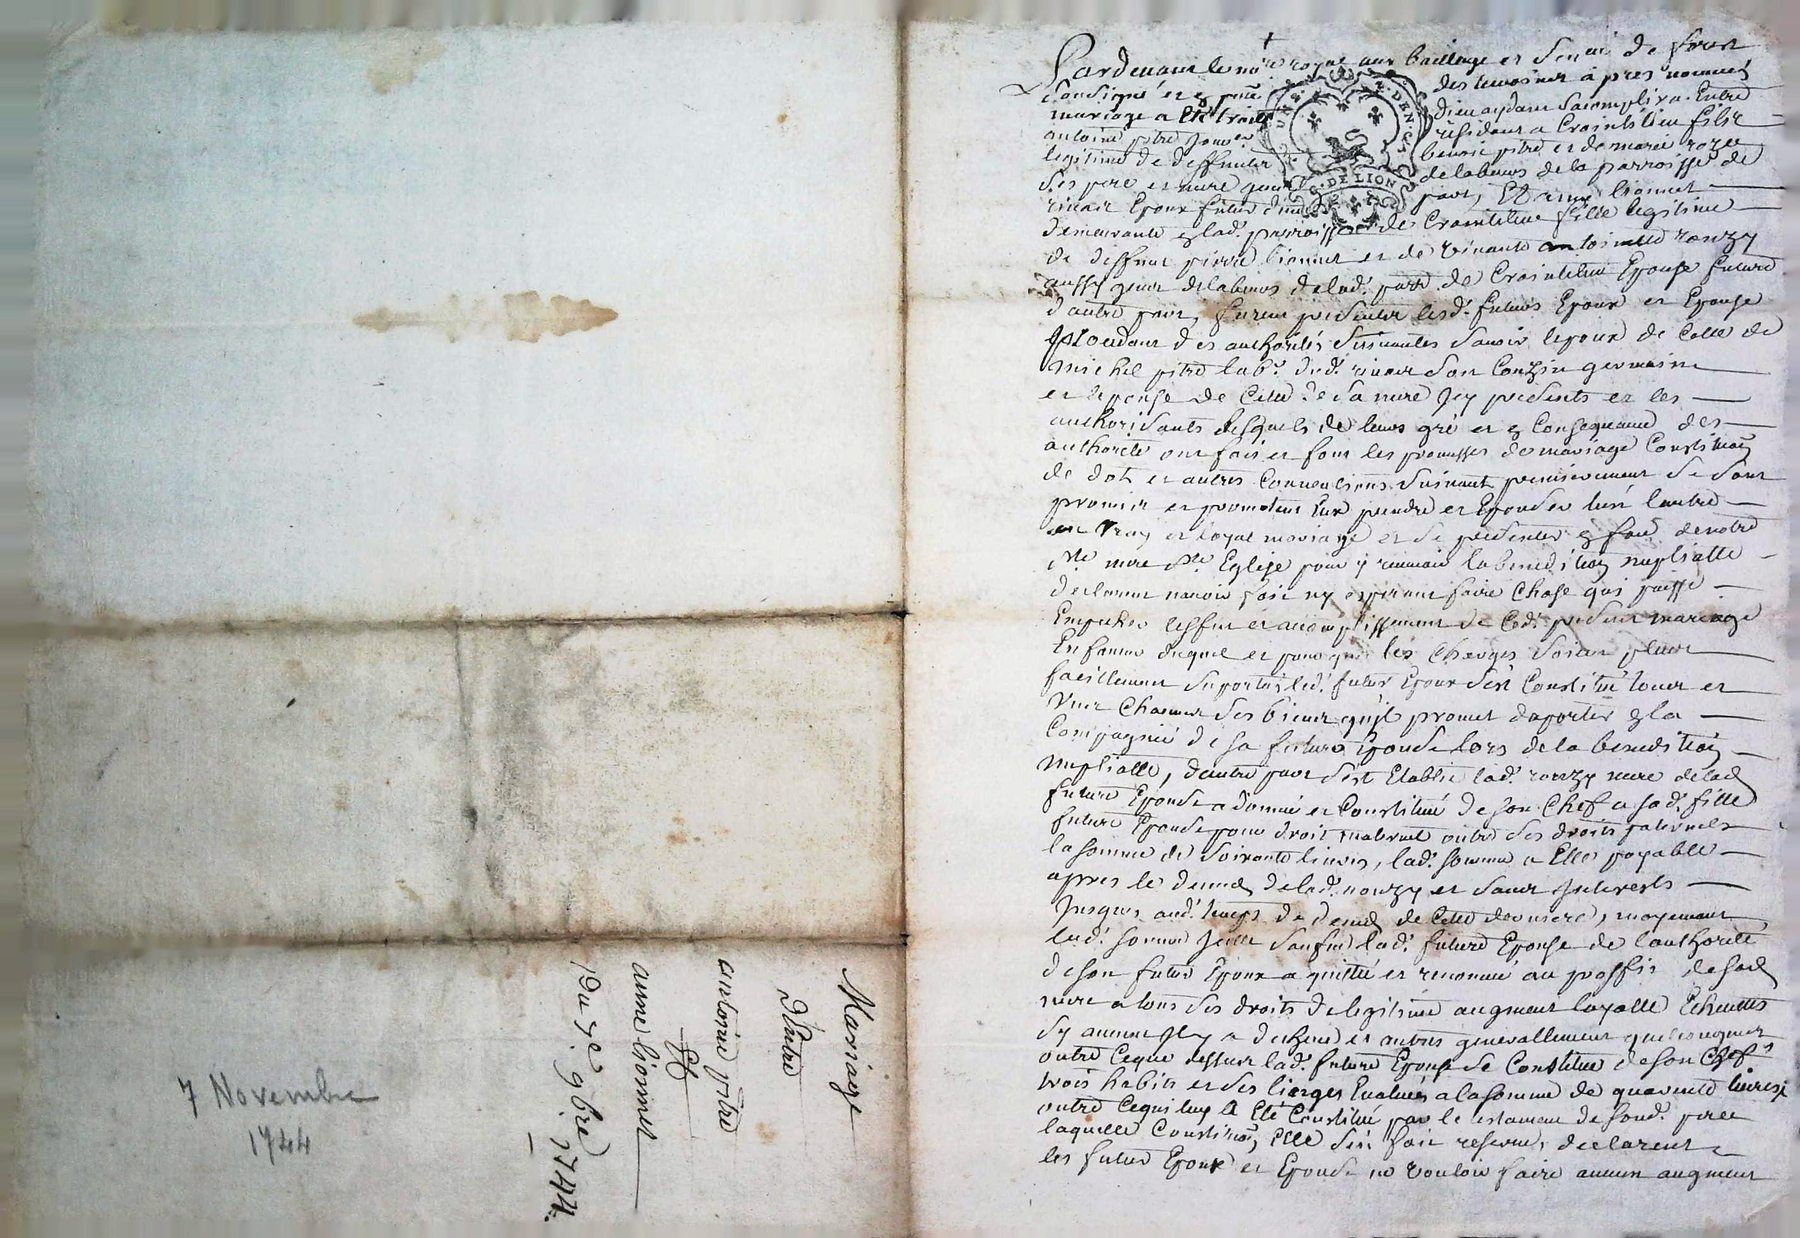 Mariage
D'entre
antoine pitre
Et
anne bionnet
Du 7e 9bre 1744.
7 Novembre
1744
Pardevant le no.re royal aux bailliage et sen.ée de forest
soussigné et en p.nce des temoins après nommés
mariage a eté traité Dieu aydant s'acomplira Entre
antoine pitre résidant a Craintilieu fils
legitime de deffunts benoit pitre et de marie
ses pere et mere de labeurs de la parroisse de
rivair Epoux futur d'une part, Et anne bionnet
demeurante en lad. parroisse de Craintilieu fille legitime
de deffunt pierre bionnet et de vivante antoinette ronzy
aussy gens de labeurs de lad. parr. de Craintilieu Epouse future
d'autre part, furent presents lesd. futurs Epoux et Epouse
procedant des authorités suivantes savoir lepoux de Celle de
michel pitre lab.r dud. rivair son Couzin germain
et lepouse de Celle de sa mere Icy presents et les
authorisants lesquels de leurs gré et en Consequence des
authorité ont fait et font les promesses de mariage Constitu͠on
de dot et autres Conventions suivants premierement se sont
promis et promettent Eux prendre et Epouser lun lautre
en vray et loyal mariage et se presenter en face de notre
s.te mere s.te Eglise pour y recevoir la benedi͠ction nuptialle
declarant navoir fait ny esperant faire Chose qui puisse
Empecher leffet et accomplissement de Ced. present mariage
En faveur duquel et pour que les Charges soient plus
facillement suportés led. futur Epoux s'est Constitué tous et
Uns Chacuns ses biens qu'il promet d'aporter en la
Compagnie de sa future Epouse lors de la benedi͠ction
nuptialle, d'autre part s'est Etablie lad. ronzy mere de lad.
future Epouse a donné et Constitué de son Chef a sad. fille
future Epouse pour droit maternel outre ses droits paternels
la somme de soixante livres, lad. somme a Elle payable
apres le deces de lad. ronzy et sans Interests
Jusques aud. temps de deces de Cette derniere, moyennant
lad. somme lad. future Epouse de l'authorité
de son futur Epoux a quitté et renoncé au proffit de sad.
mere a tous ses droits de legitime augment layalle Echeutte
sy aucune Il y a decheue et autres generallement quelconques
outre Ceque dessus lad. future Epouse se Constitue de son Chef
trois habits et ses linges Evalués a la somme de quarente livres
outre Ce qui luy a Eté Constitué par le testament de soud. pere
laquelle Constitu͠on Elle s'est fait reserve, declarent
les futur Epoux et Epouse ne vouloir faire aucun augment
G. DE LION